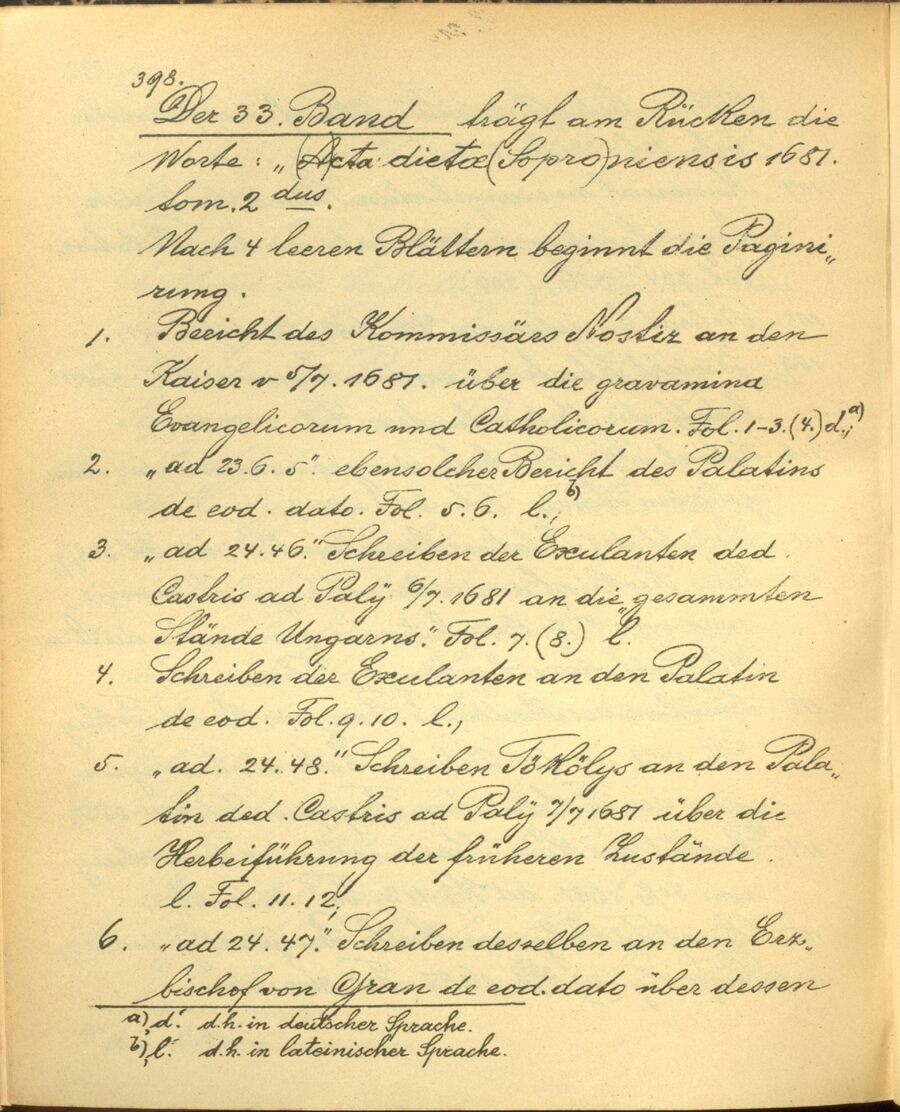 398.
Der 33. Band trägt am Rücken die
Worte: „(A)cta dietæ (Sopro)niensis 1681.
tom. 2 dus.
Nach 4 leeren Blättern beginnt die Pagini„
rung.
1. Bericht des Kommissärs Nostiz an den
Kaiser v 5/7. 1681. über die gravamina
Evangelicorum und Catholicorum. Fol. 1-3. (4.) d.; a)
2. „ad 23.6.5". ebensolcher Bericht des Palatins
de eod. dato. Fol. 5. 6. l.; b)
3. „ad 24.46." Schreiben der Exulanten ded.
Castris ad Palÿ 6/7. 1681 an die „gesammten
Stände Ungarns." Fol. 7. (8.) l.
4. Schreiben der Exulanten an den Palatin
de eod. Fol. 9. 10. l.;
5. „ad. 24. 48." Schreiben Tökölys an den Pala„
tin ded. Castris ad Palÿ 7/7 1681 über die
Herbeiführung der früheren Zustände.
l. Fol. 11. 12;
6. „ad 24. 47." Schreiben desselben an den Erz„
bischof von Gran de eod. dato über dessen
a) d.: d.h. in deutscher Sprache.
b) l.: d.h. in lateinischer Sprache.